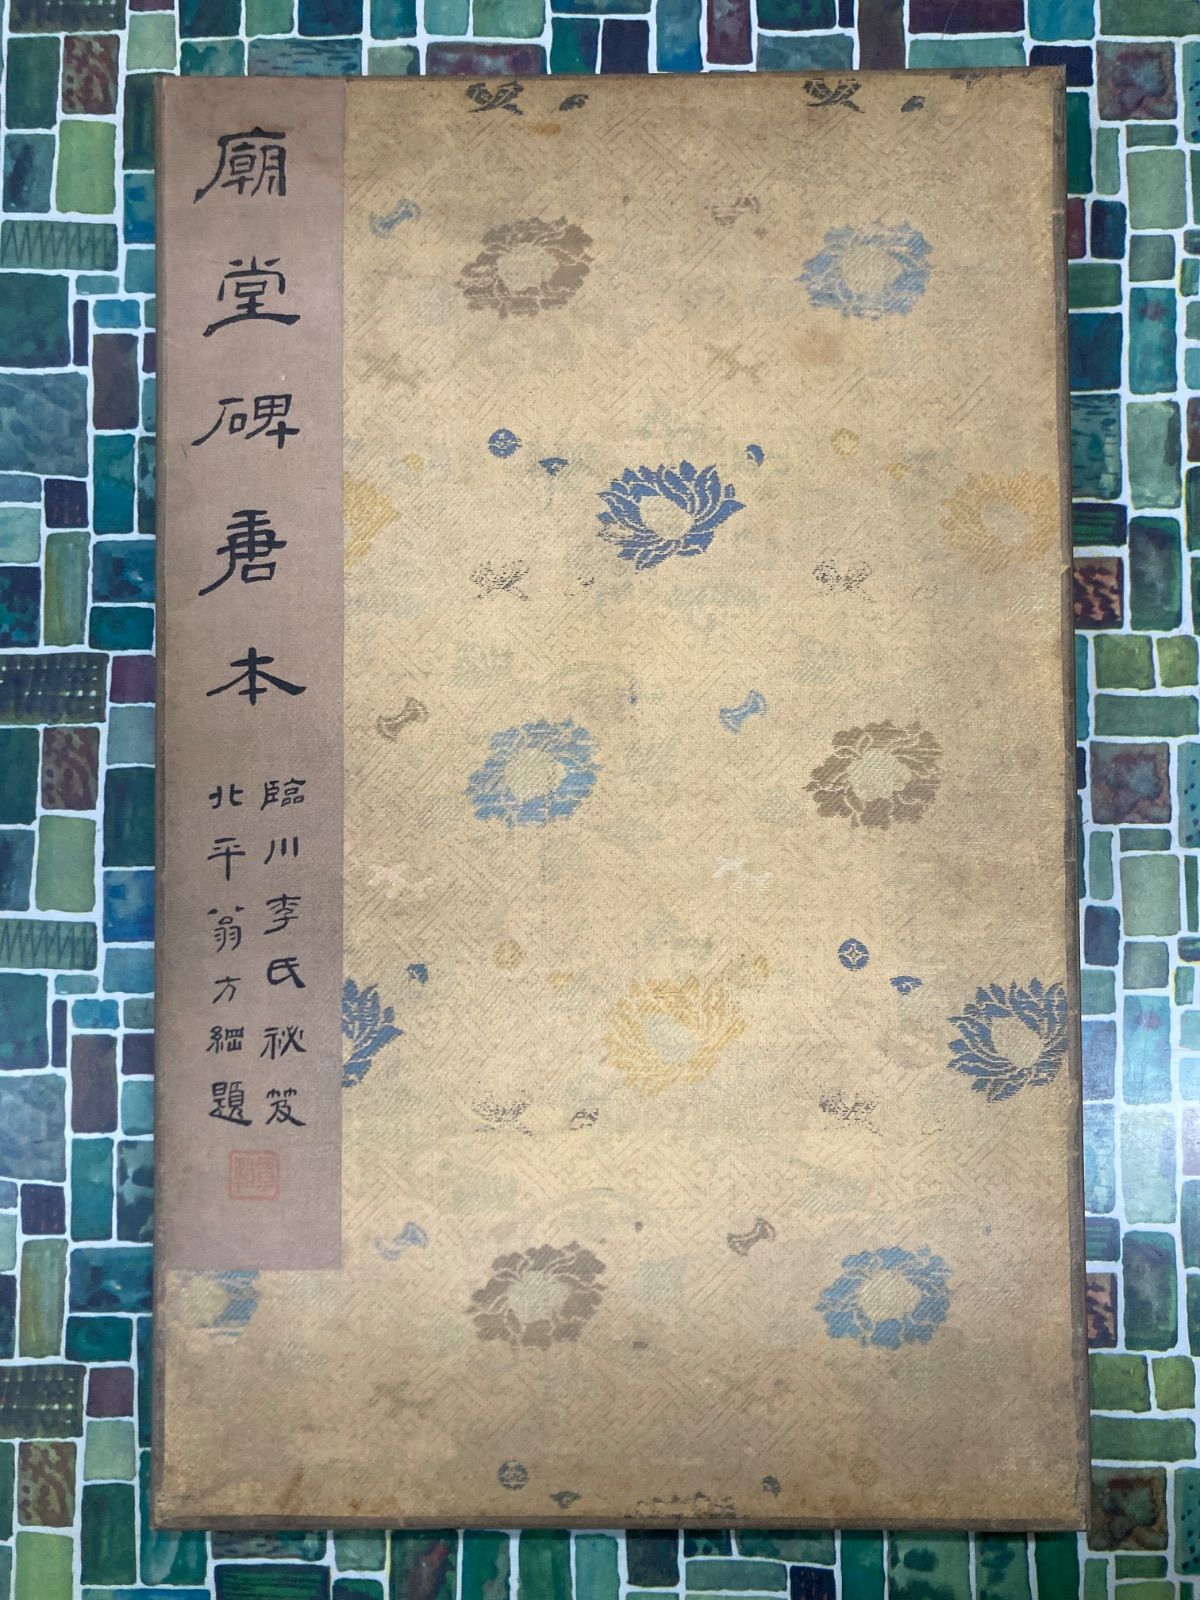 廟堂碑唐本
臨川李氏祕笈
北平翁方綱題